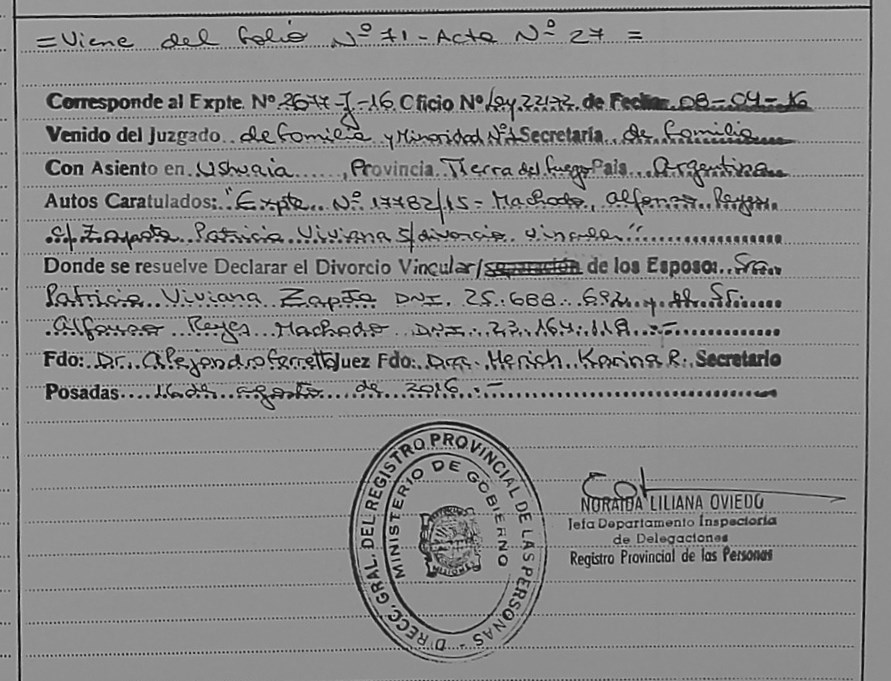 = Viene del folio Nº 71 - Acta Nº 27 =
Corresponde al Expte. Nº 2677-J-16 Oficio Nº Ley 22172 de Fecha 08-04-16
Venido del Juzgado de familia y Minoridad Nº1 Secretaria de familia
Con Asiento en Ushuaia, Provincia Tierra del fuego Pais Argentina
Autos Caratulados: "Expte Nº 17782/15 - Machado, Alfonso Reyes
c/ Zapata Patricia Viviana s/divorcio vincular"
Donde se resuelve Declarar el Divorcio Vincular/separación de los Esposos: Sra.
Patricia Viviana Zapata DNI. 25.688.692 y el Sr.
Alfonso Reyes Machado DNI. 23.164.118.-
Fdo: Dr. Alejandro Ferretto Juez Fdo: Dra. Merich Karina R. Secretario
Posadas 16 de agosto de 2016.-
DIRECC. GRAL. DEL REGISTRO PROVINCIAL DE LAS PERSONAS
MINISTERIO DE GOBIERNO
MISIONES
NORAIDA LILIANA OVIEDO
Jefa Departamento Inspectoria
de Delegaciones
Registro Provincial de las Personas